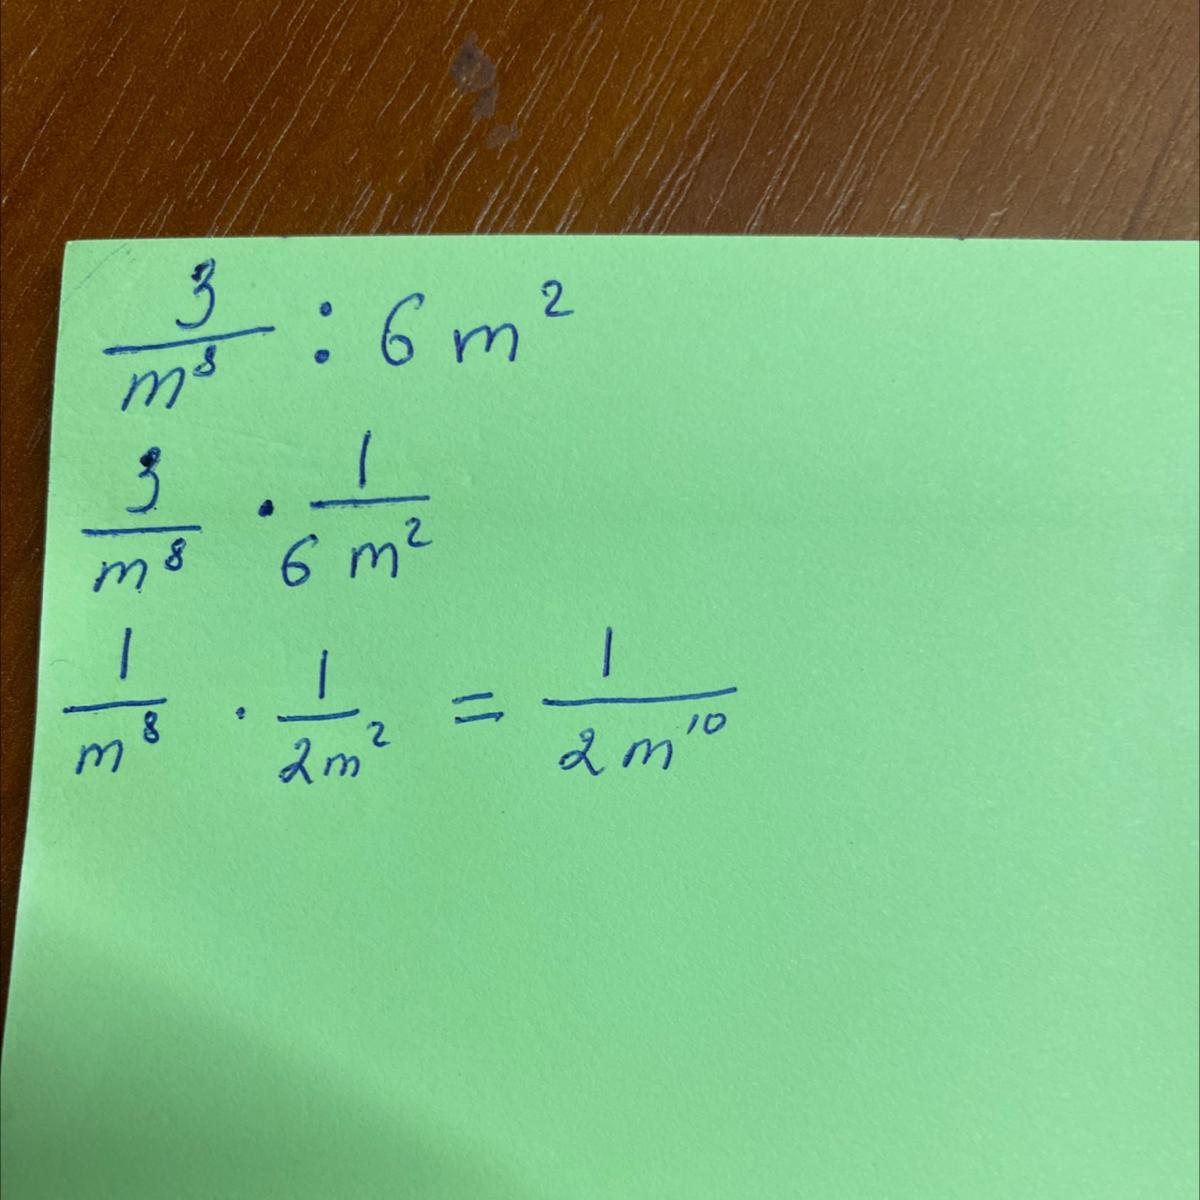 3/m⁸ : 6m²
3/m⁸ · 1/6m²
1/m⁸ · 1/2m² = 1/2m¹⁰